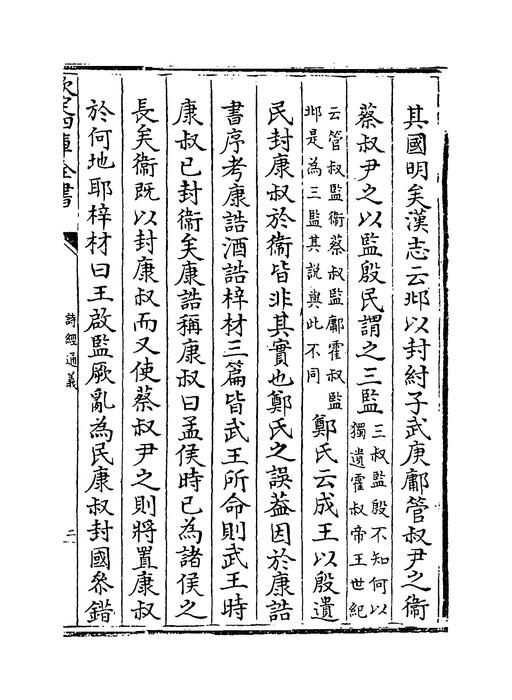 其國明矣漢志云邶以封紂子武庚鄘管叔尹之衞
蔡叔尹之以監殷民謂之三監
三叔監殷不知何以
獨遺霍叔帝王世紀
云管叔監衞蔡叔監鄘霍叔監
邶是為三監其說與此不同
鄭氏云成王以殷遺
民封康叔於衞皆非其實也鄭氏之誤葢因於康誥
書序考康誥酒誥梓材三篇皆武王所命則武王時
康叔已封衞矣康誥稱康叔曰孟侯時已為諸侯之
長矣衞既以封康叔而又使蔡叔尹之則將置康叔
於何地耶梓材曰王啟監厥亂為民康叔封國叅錯
欽定四庫全書
詩經通義
二